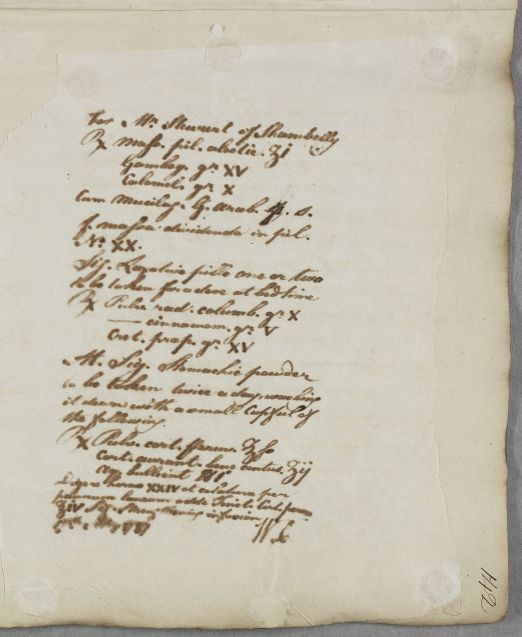 For Mr. Stewart of Shambelly
℞ Mass. pil. aloetic. ʒj
Gambog. gr. XV
Calomel. gr. X
Cum Mucilag. G. Arab. q. s.
f. massa dividenda in pil.
No. XX.
Sig. Laxative pills one or two
to be taken for a dose at bed time
℞ Pulv. rad. columb. gr. X
— cinnamom. gr. V
Cret. ppt. gr. XV
M. Sig. Stomachic powder
to be taken twice a day, washing
it down with a small cupful of
the following.
℞ Pulv. cort. Peruv. ℥ſs
Cort. aurant. contus. ʒij
Aq. bullient. ℔j
horas XXIV et colatura per
adde Tinct. Cort.
℥iv Sig. infusion